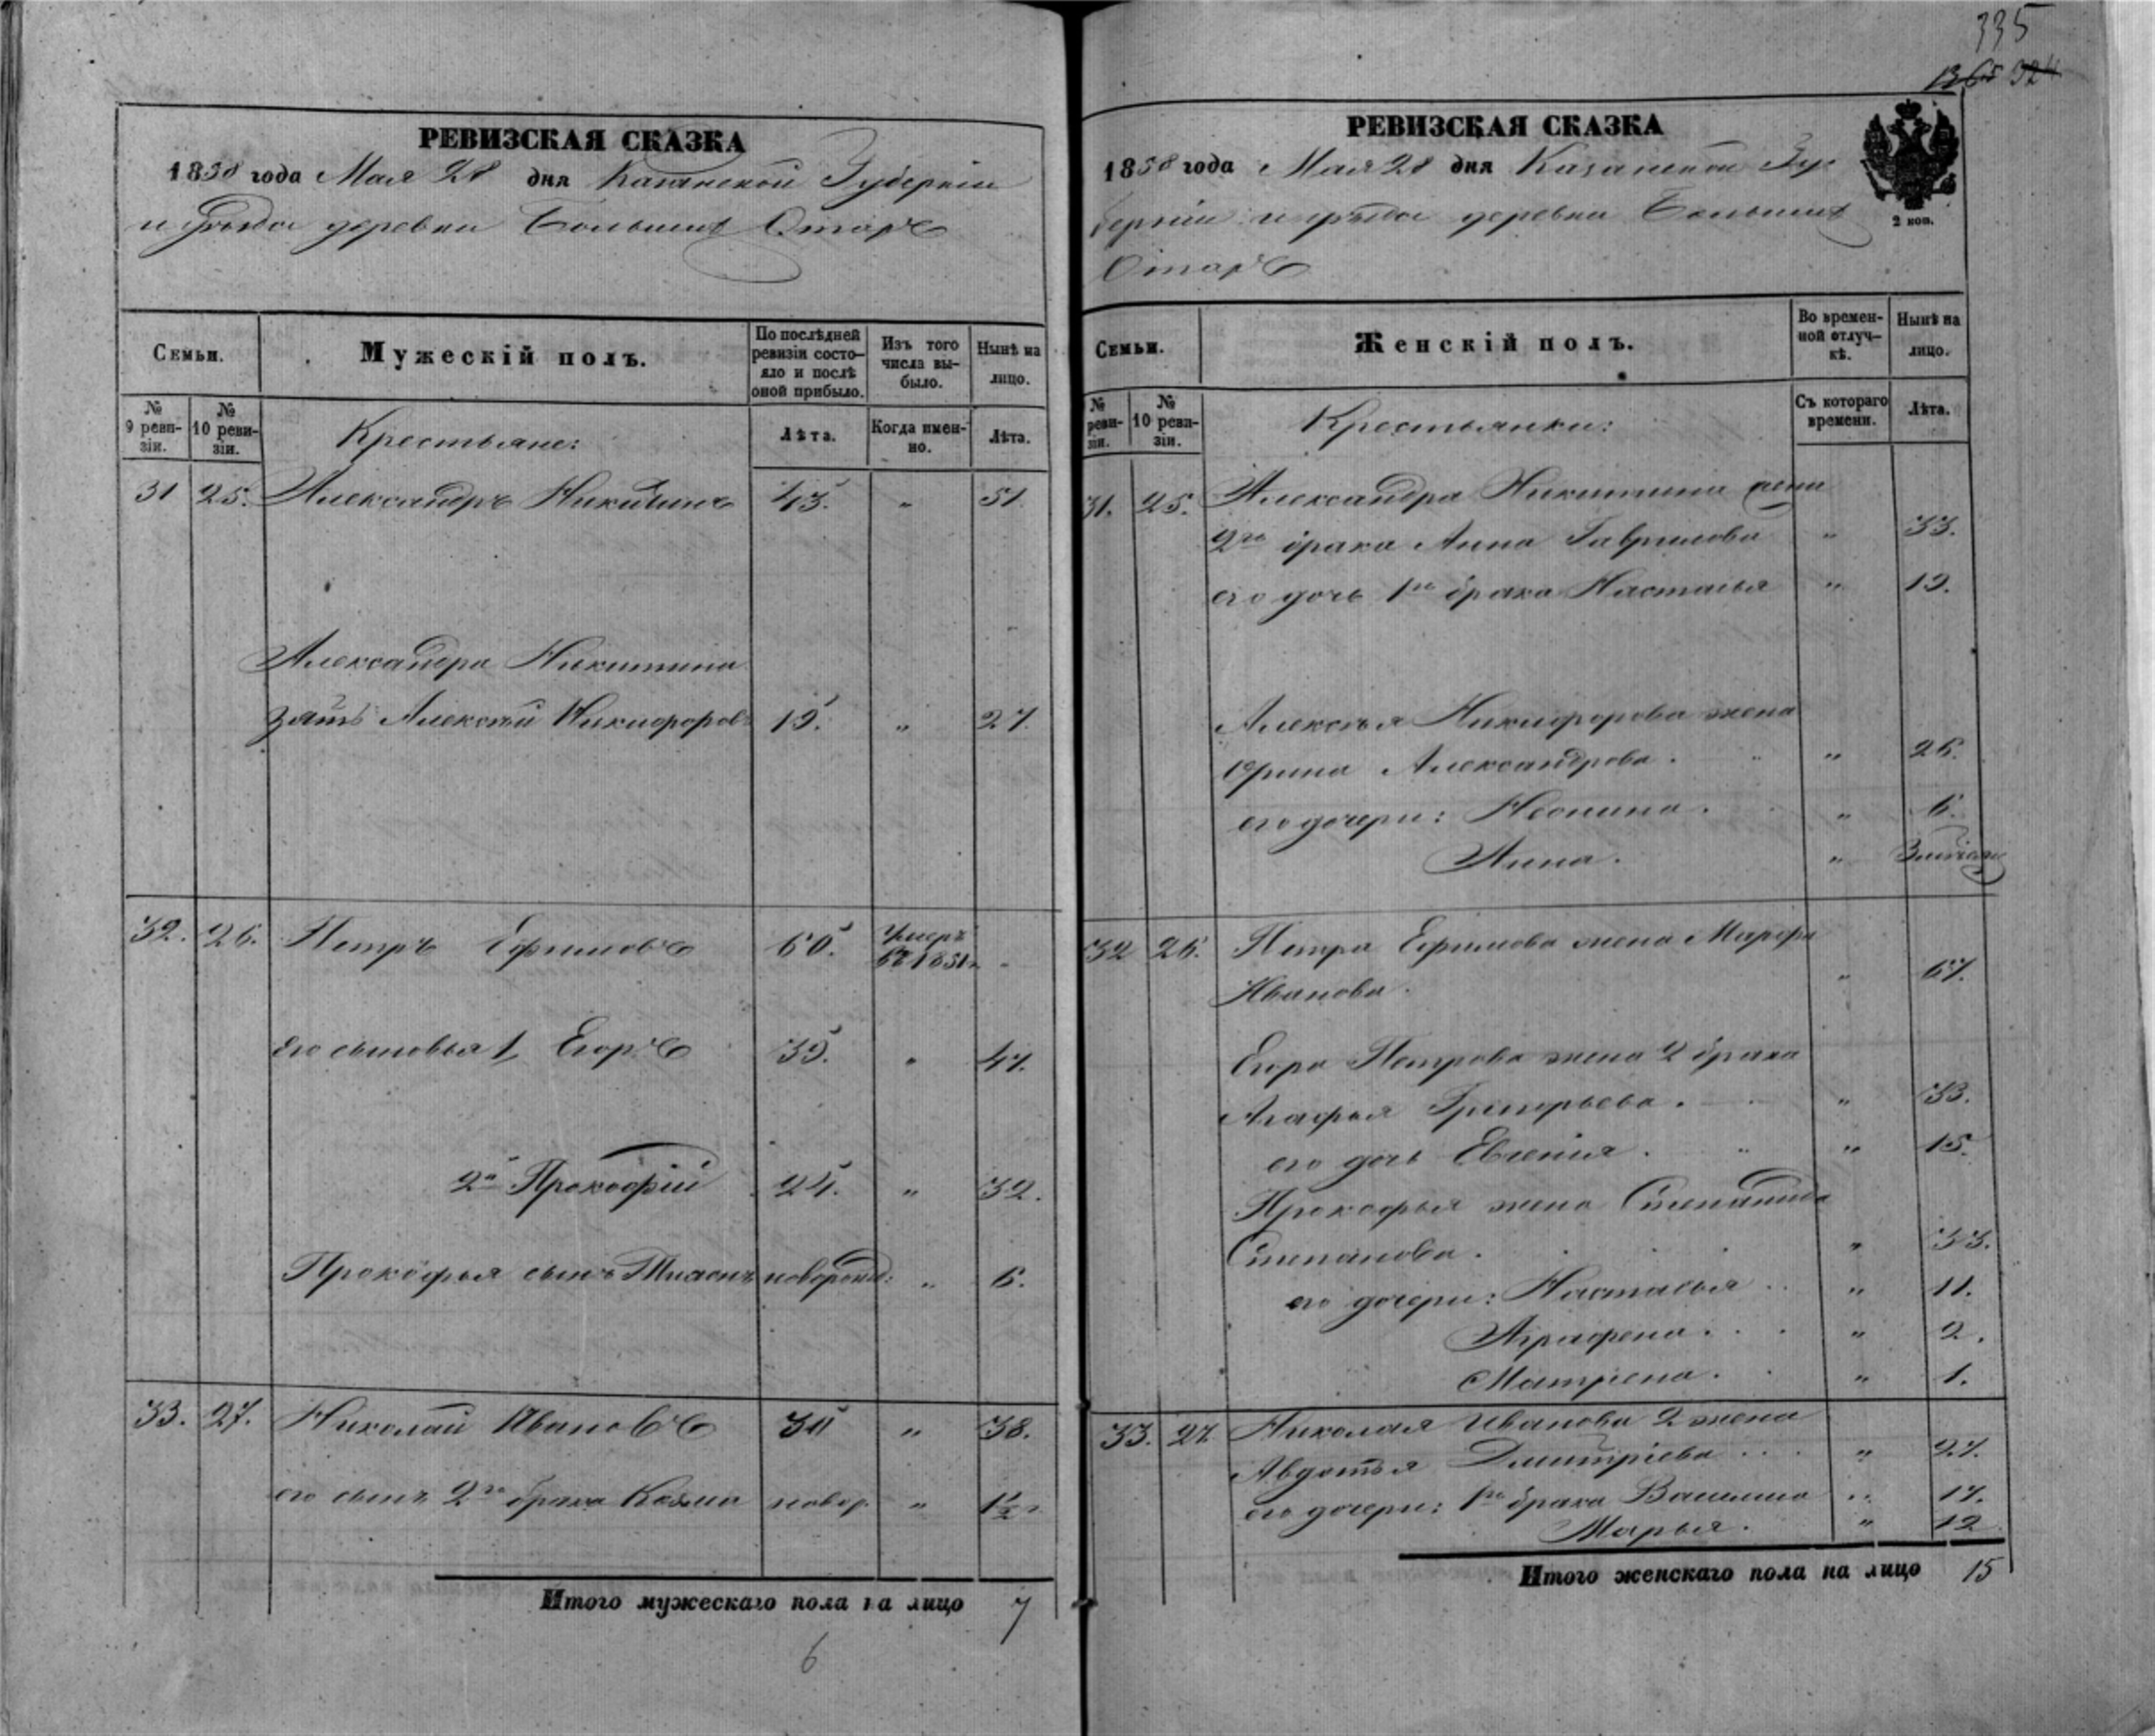 РЕВИЗСКАЯ СКАЗКА
1858 года Мая 28 дня Казанской Губерніи
и уѣзда деревни Большихъ Отаръ
Семьи.
Мужескій полъ.
По послѣдней ревизіи состо-яло и послѣ оной прибыло.
Изъ того числа вы-было.
Нынѣ на лицо.
№ 9 реви-зіи.
№ 10 реви-зіи.
Крестьяне:
Лѣта.
Когда имен-но.
Лѣта.
31 25. Александръ Никитинъ 43. " 51.
Александра Никитина
зять Алексѣй Никифоровъ 19. " 27.
32. 26. Петръ Ефимовъ 60. Умеръ въ 1851 г. -
Его сыновья 1, Егоръ 39. " 47.
2й Прокофій 24. " 32.
Прокофья сынъ новорожд: " 6.
33. 27. Николай Ивановъ 30 " 38.
его сынъ 2го брака Козма новор. " 1½ г.
Итого мужескаго пола на лицо 7
6
335
1365 324
РЕВИЗСКАЯ СКАЗКА
1858 года Мая 28 дня Казанской Гу-
берніи и уѣзда деревни Большихъ
Отаръ
2 коп.
Семьи.
Женскій полъ.
Во времен-ной отлуч-кѣ.
Нынѣ на лицо.
№ реви-зіи.
№ 10 реви-зіи.
Крестьянки:
Съ котораго времени.
Лѣта.
31. 25. Александра Никитина жена
2го брака Анна Гаврилова " 33.
его дочь 1го брака Настасья " 19.
Алексѣя Никифорова жена
Ирина Александрова. " 26.
его дочери: Неонила. " 6.
Анна. "
32 26. Петра Ефимова жена Марфа
Иванова. " 67.
Егора Петрова жена 2 брака
Агафья Григорьева. " 33.
его дочь Евгенія. " 15.
Прокофья жена Степанида
Степанова. " 33.
его дочери: Настасья .. " 11.
Аграфена... " 2.
Матрена. " 1.
33. 27. Николая Иванова 2 жена
Авдотья Дмитріева ... " 27.
его дочери: 1го брака " 17.
Марья. " 12
Итого женскаго пола на лицо 15